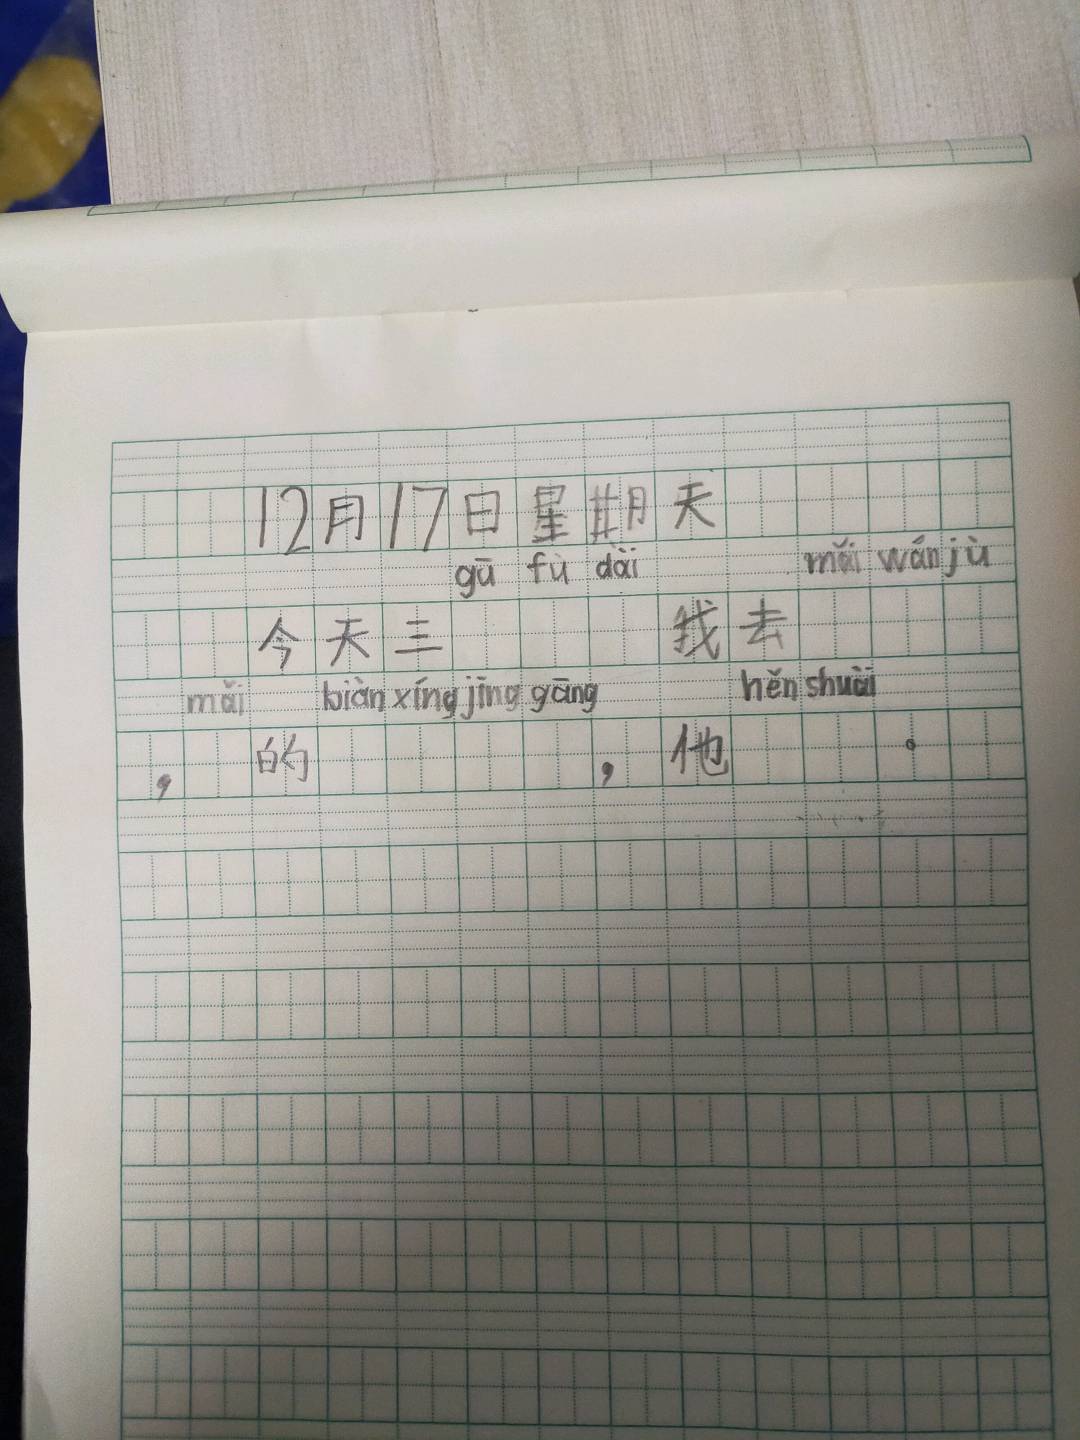 12月17日星期天
gū fù dài mǎi wán jù
今天三 我去
mǎi biàn xíng jīng gāng hěn shuài
，的，他。